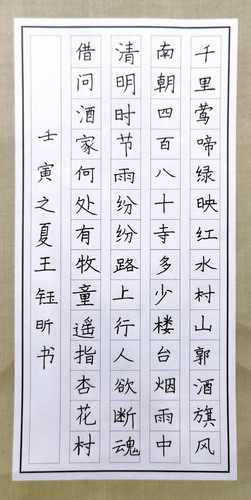 千里莺啼绿映红水村山郭酒旗风
南朝四百八十寺多少楼台烟雨中
清明时节雨纷纷路上行人欲断魂
借问酒家何处有牧童遥指杏花村
壬寅之夏王钰昕书